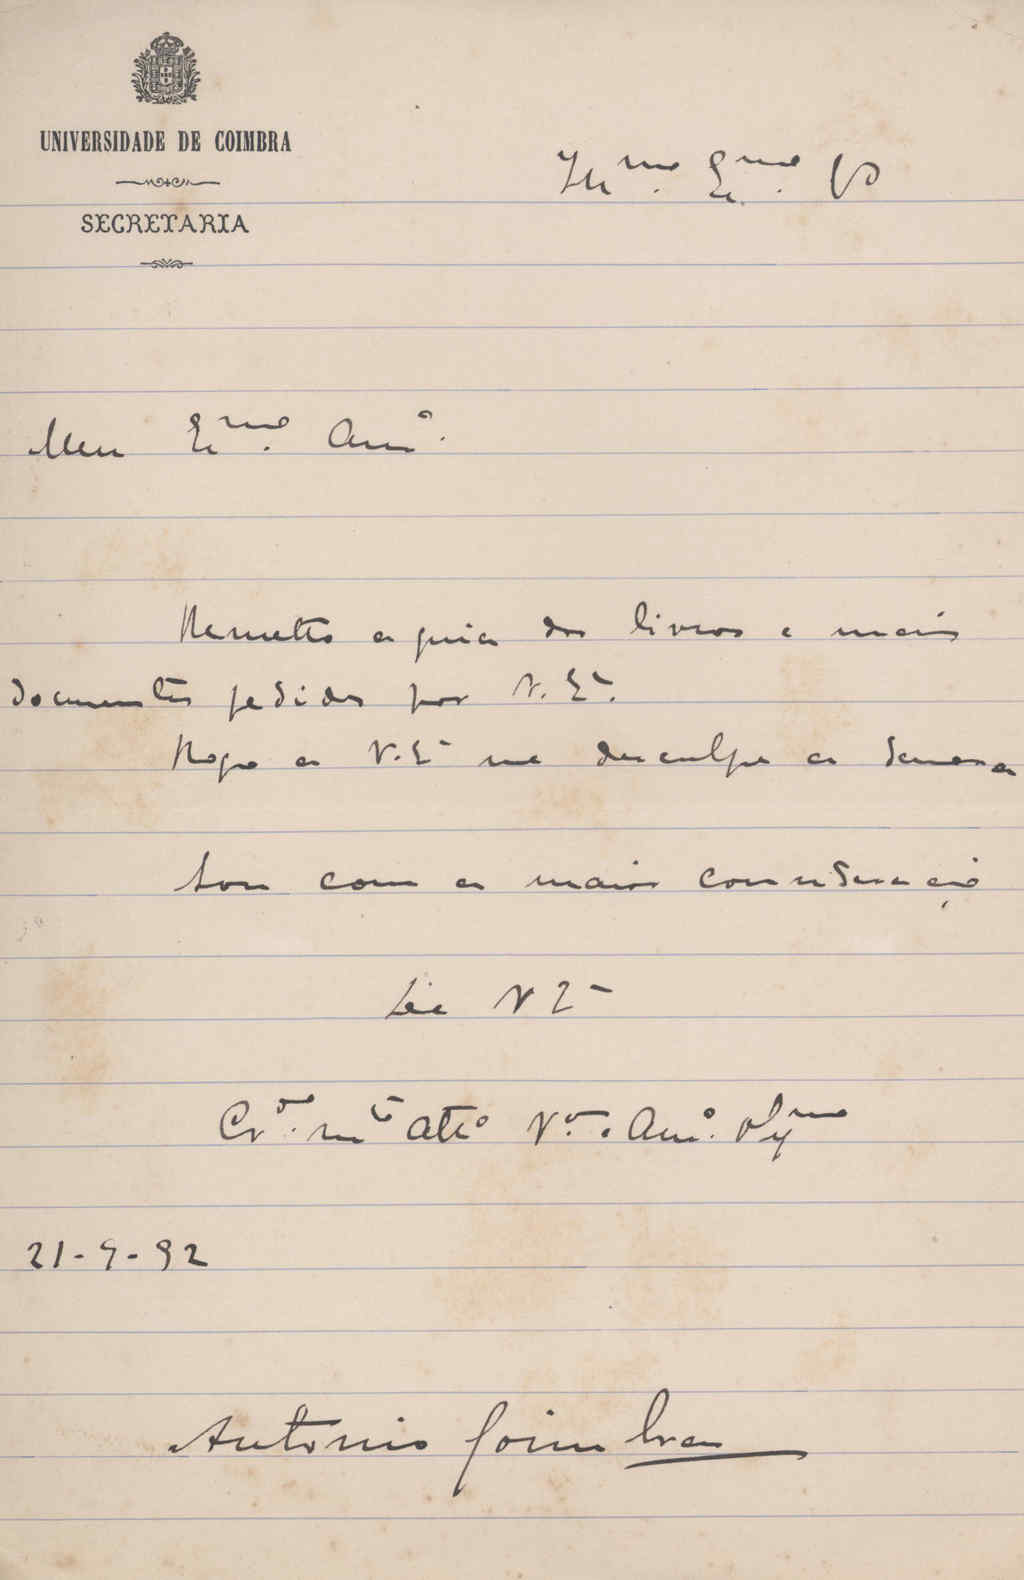 UNIVERSIDADE DE COIMBRA
SECRETARIA
Ill.mo Ex.mo
Meu Ex.mo Am.o
Remetto a guia dos livros e mais
documentos pedidos por V. Ex.a
Rogo a V. Ex.a me desculpe a demora
Sou com a maior consideração
De V Ex.a
Cr.do m.to att.o V.or e Am.o
21-9-92
Antonio Coimbra